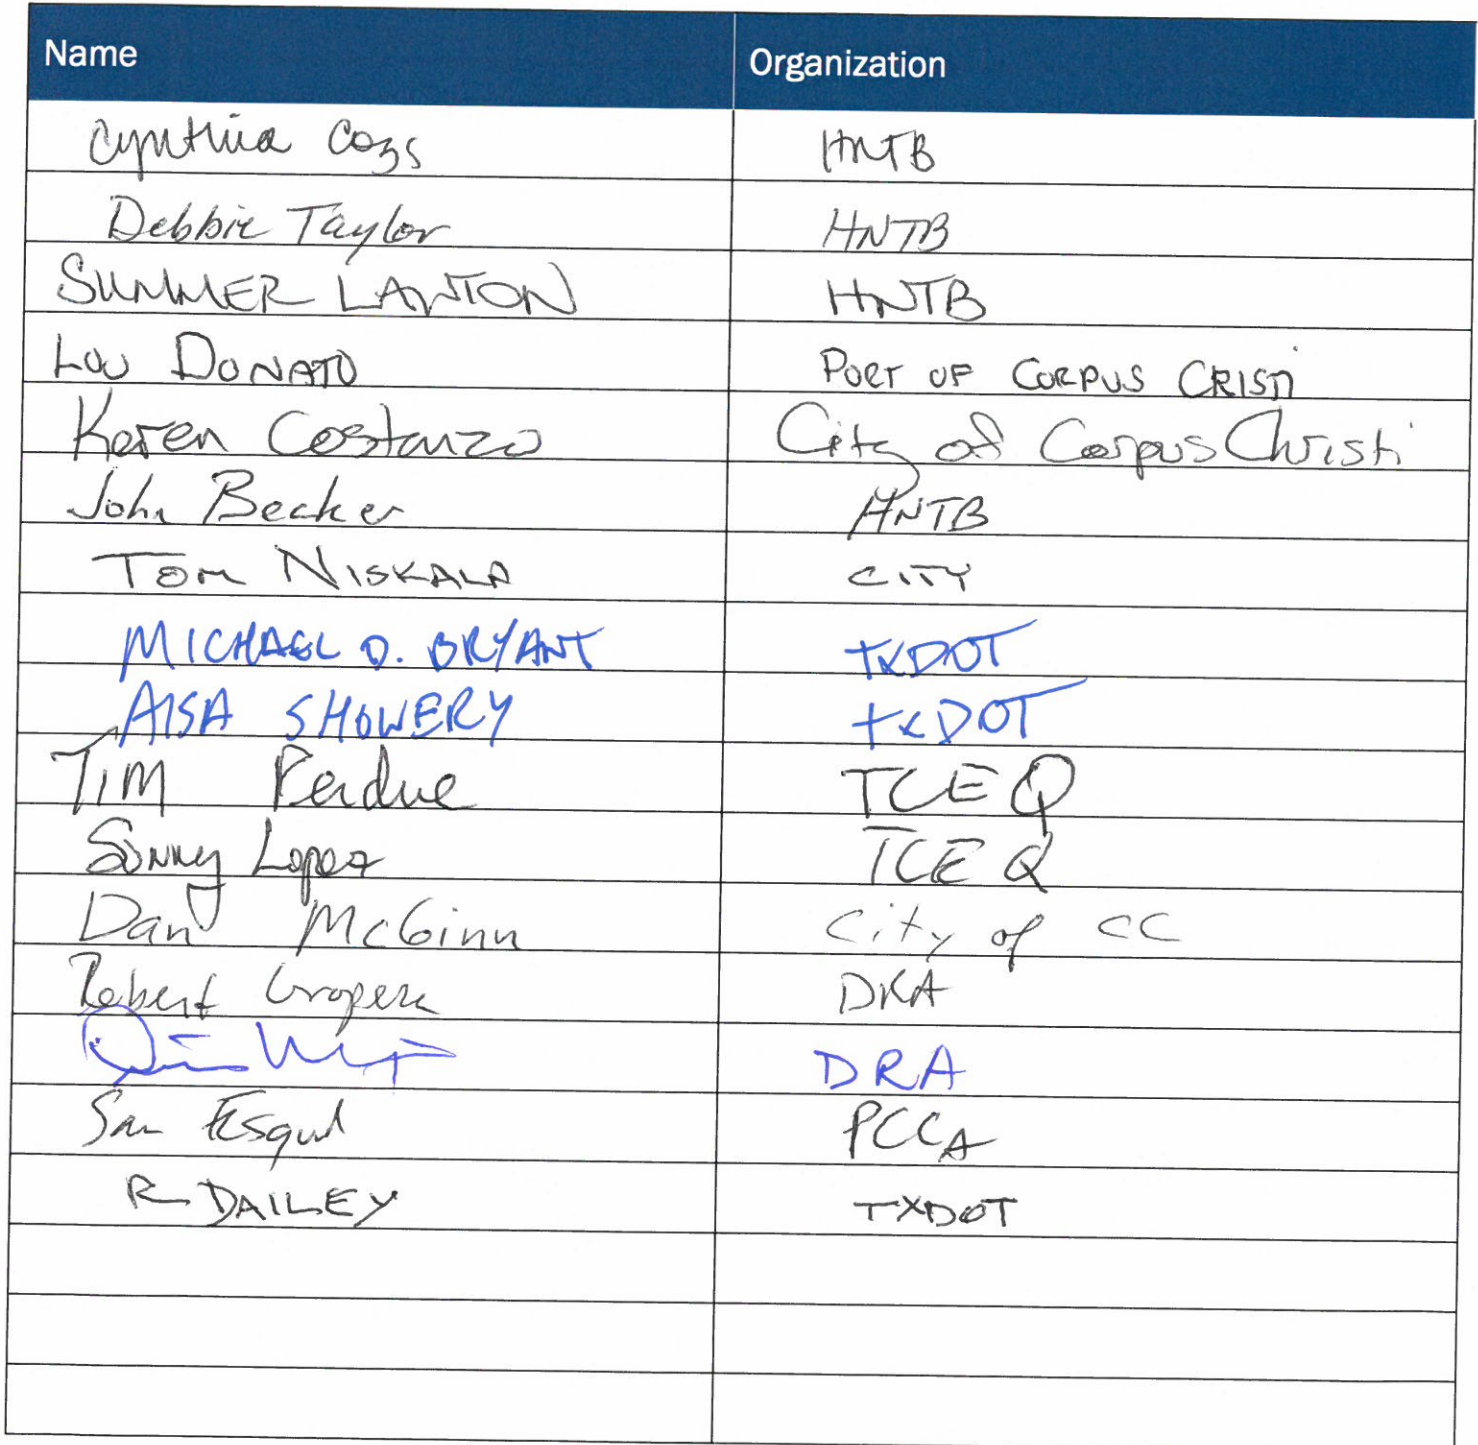 Name Organization
Cynthia HNTB
Debbie Taylor HNTB
SUMMER LAWTON HNTB
LOU DONATO PORT OF CORPUS CRISTI
Karen Costanzo City of Corpus Christi
John Becker HNTB
TOM NISKALA CITY
MICHAEL D. BRYANT TXDOT
AISA SHOWERY TXDOT
TIM Perdue TCEQ
Sonny Lopez TCEQ
Dan McGinn City of CC
Robert DRA
DRA
Sam PCCA
R DAILEY TXDOT